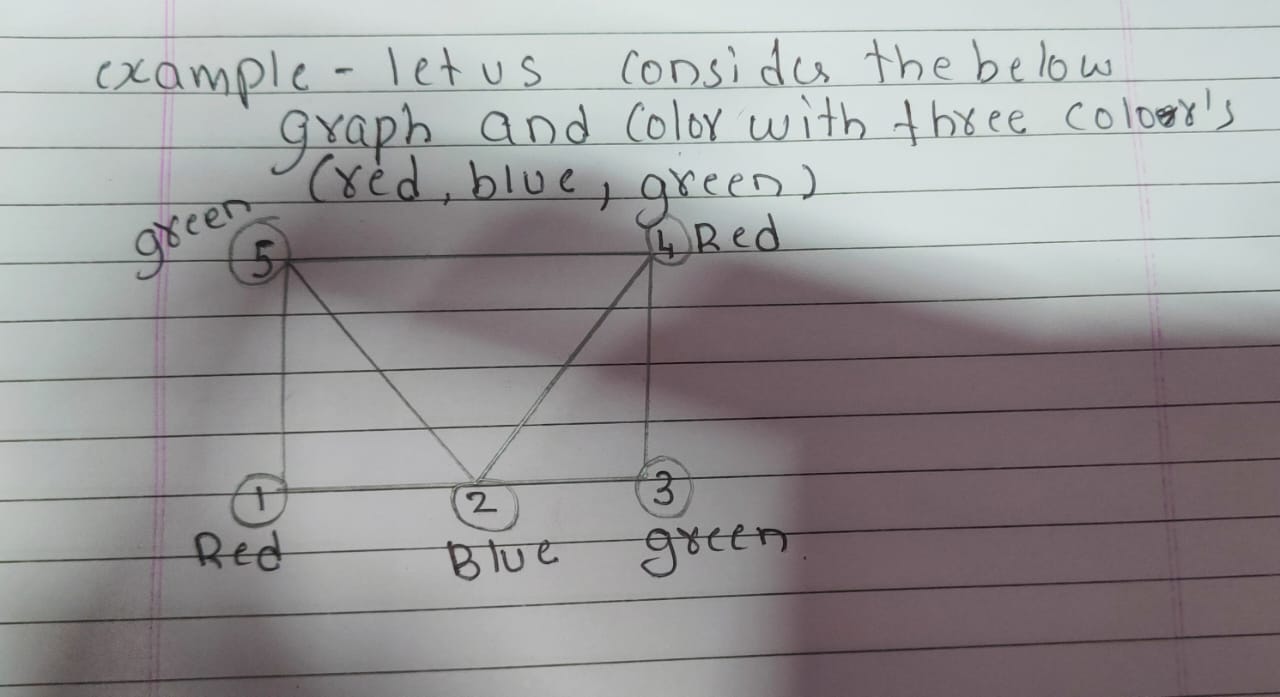 example - let us consider the below
graph and color with three colour's
(red, blue, green)
green 5 4 Red
1 2 3
Red Blue green